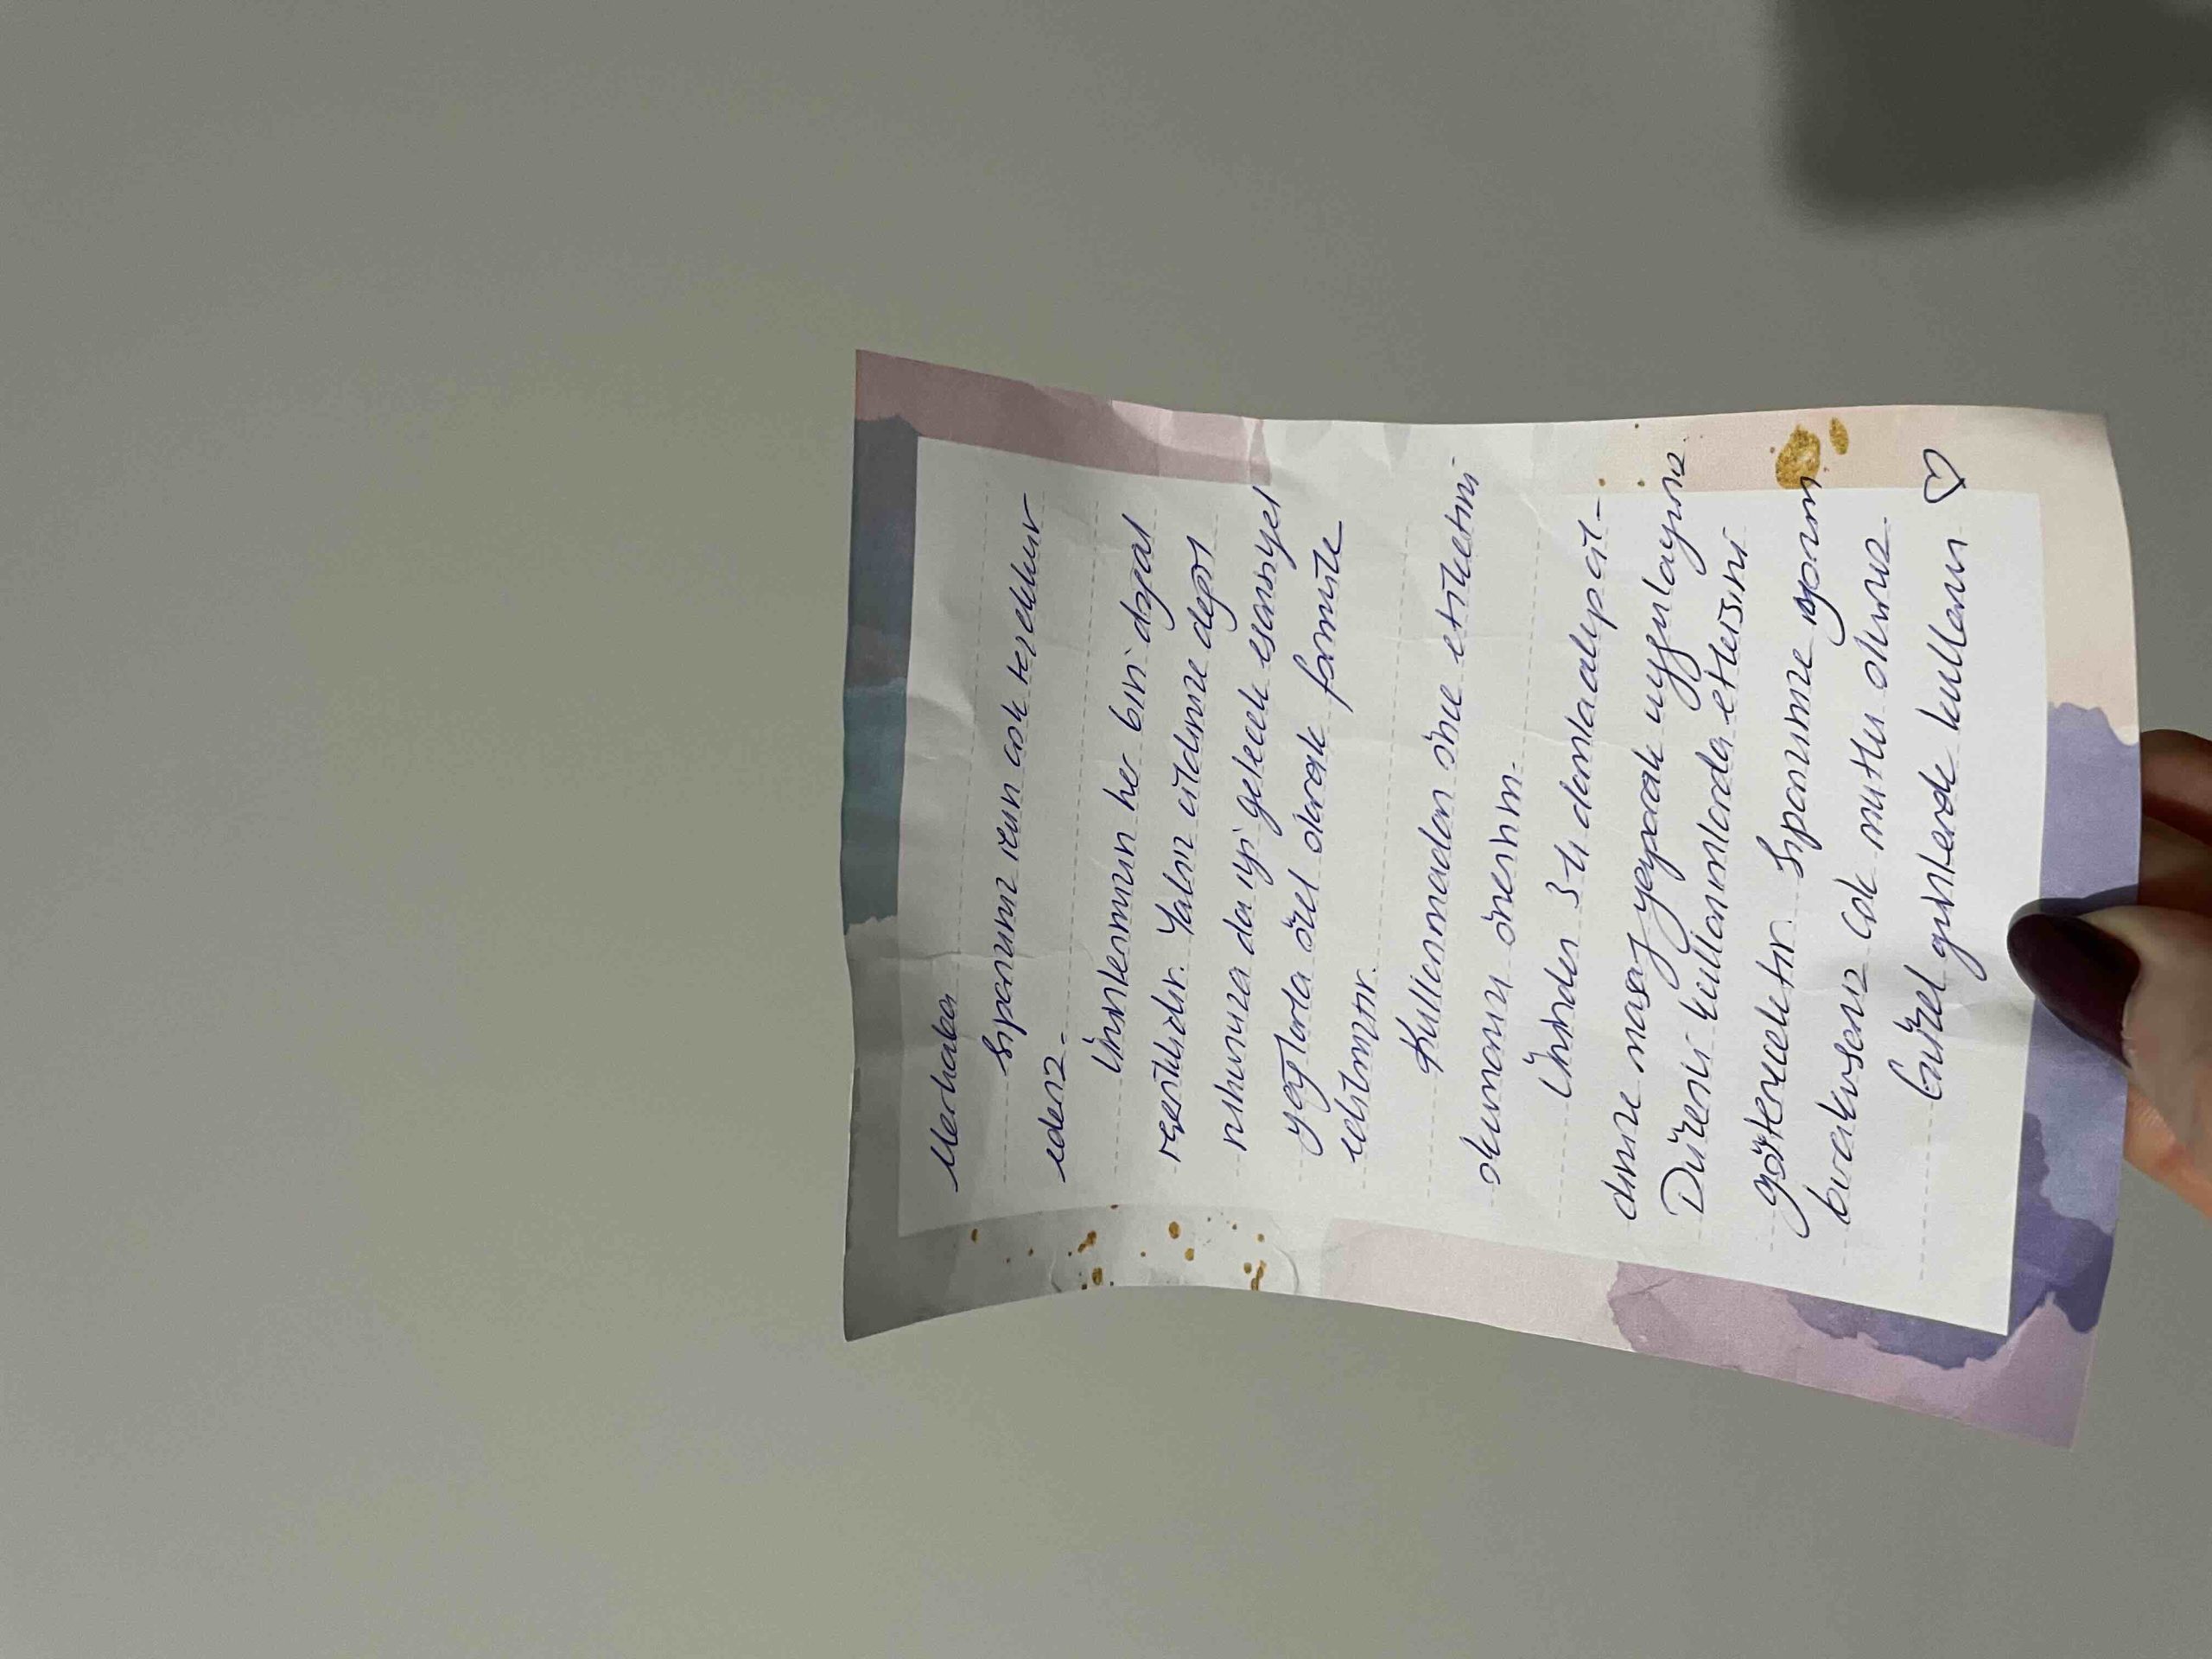 Merhaba
Siparişiniz için çok teşekkür
ederiz.
Ürünlerimizin her biri doğal
içeriklidir. Yalnız cildinize değil
ruhunuza da iyi gelecek esansiyel
yağlarla özel olarak formüle
edilmiştir.
Kullanmadan önce etiketini
okumanızı öneririm.
Üründen 3-4 damla alıp cil-
dinize masaj yaparak uygulayınız.
Düzenli kullanımlarda etkisini
gösterecektir. Siparişinize yorum
bırakırsanız çok mutlu oluruz.
Güzel günlerde kullanın ♡